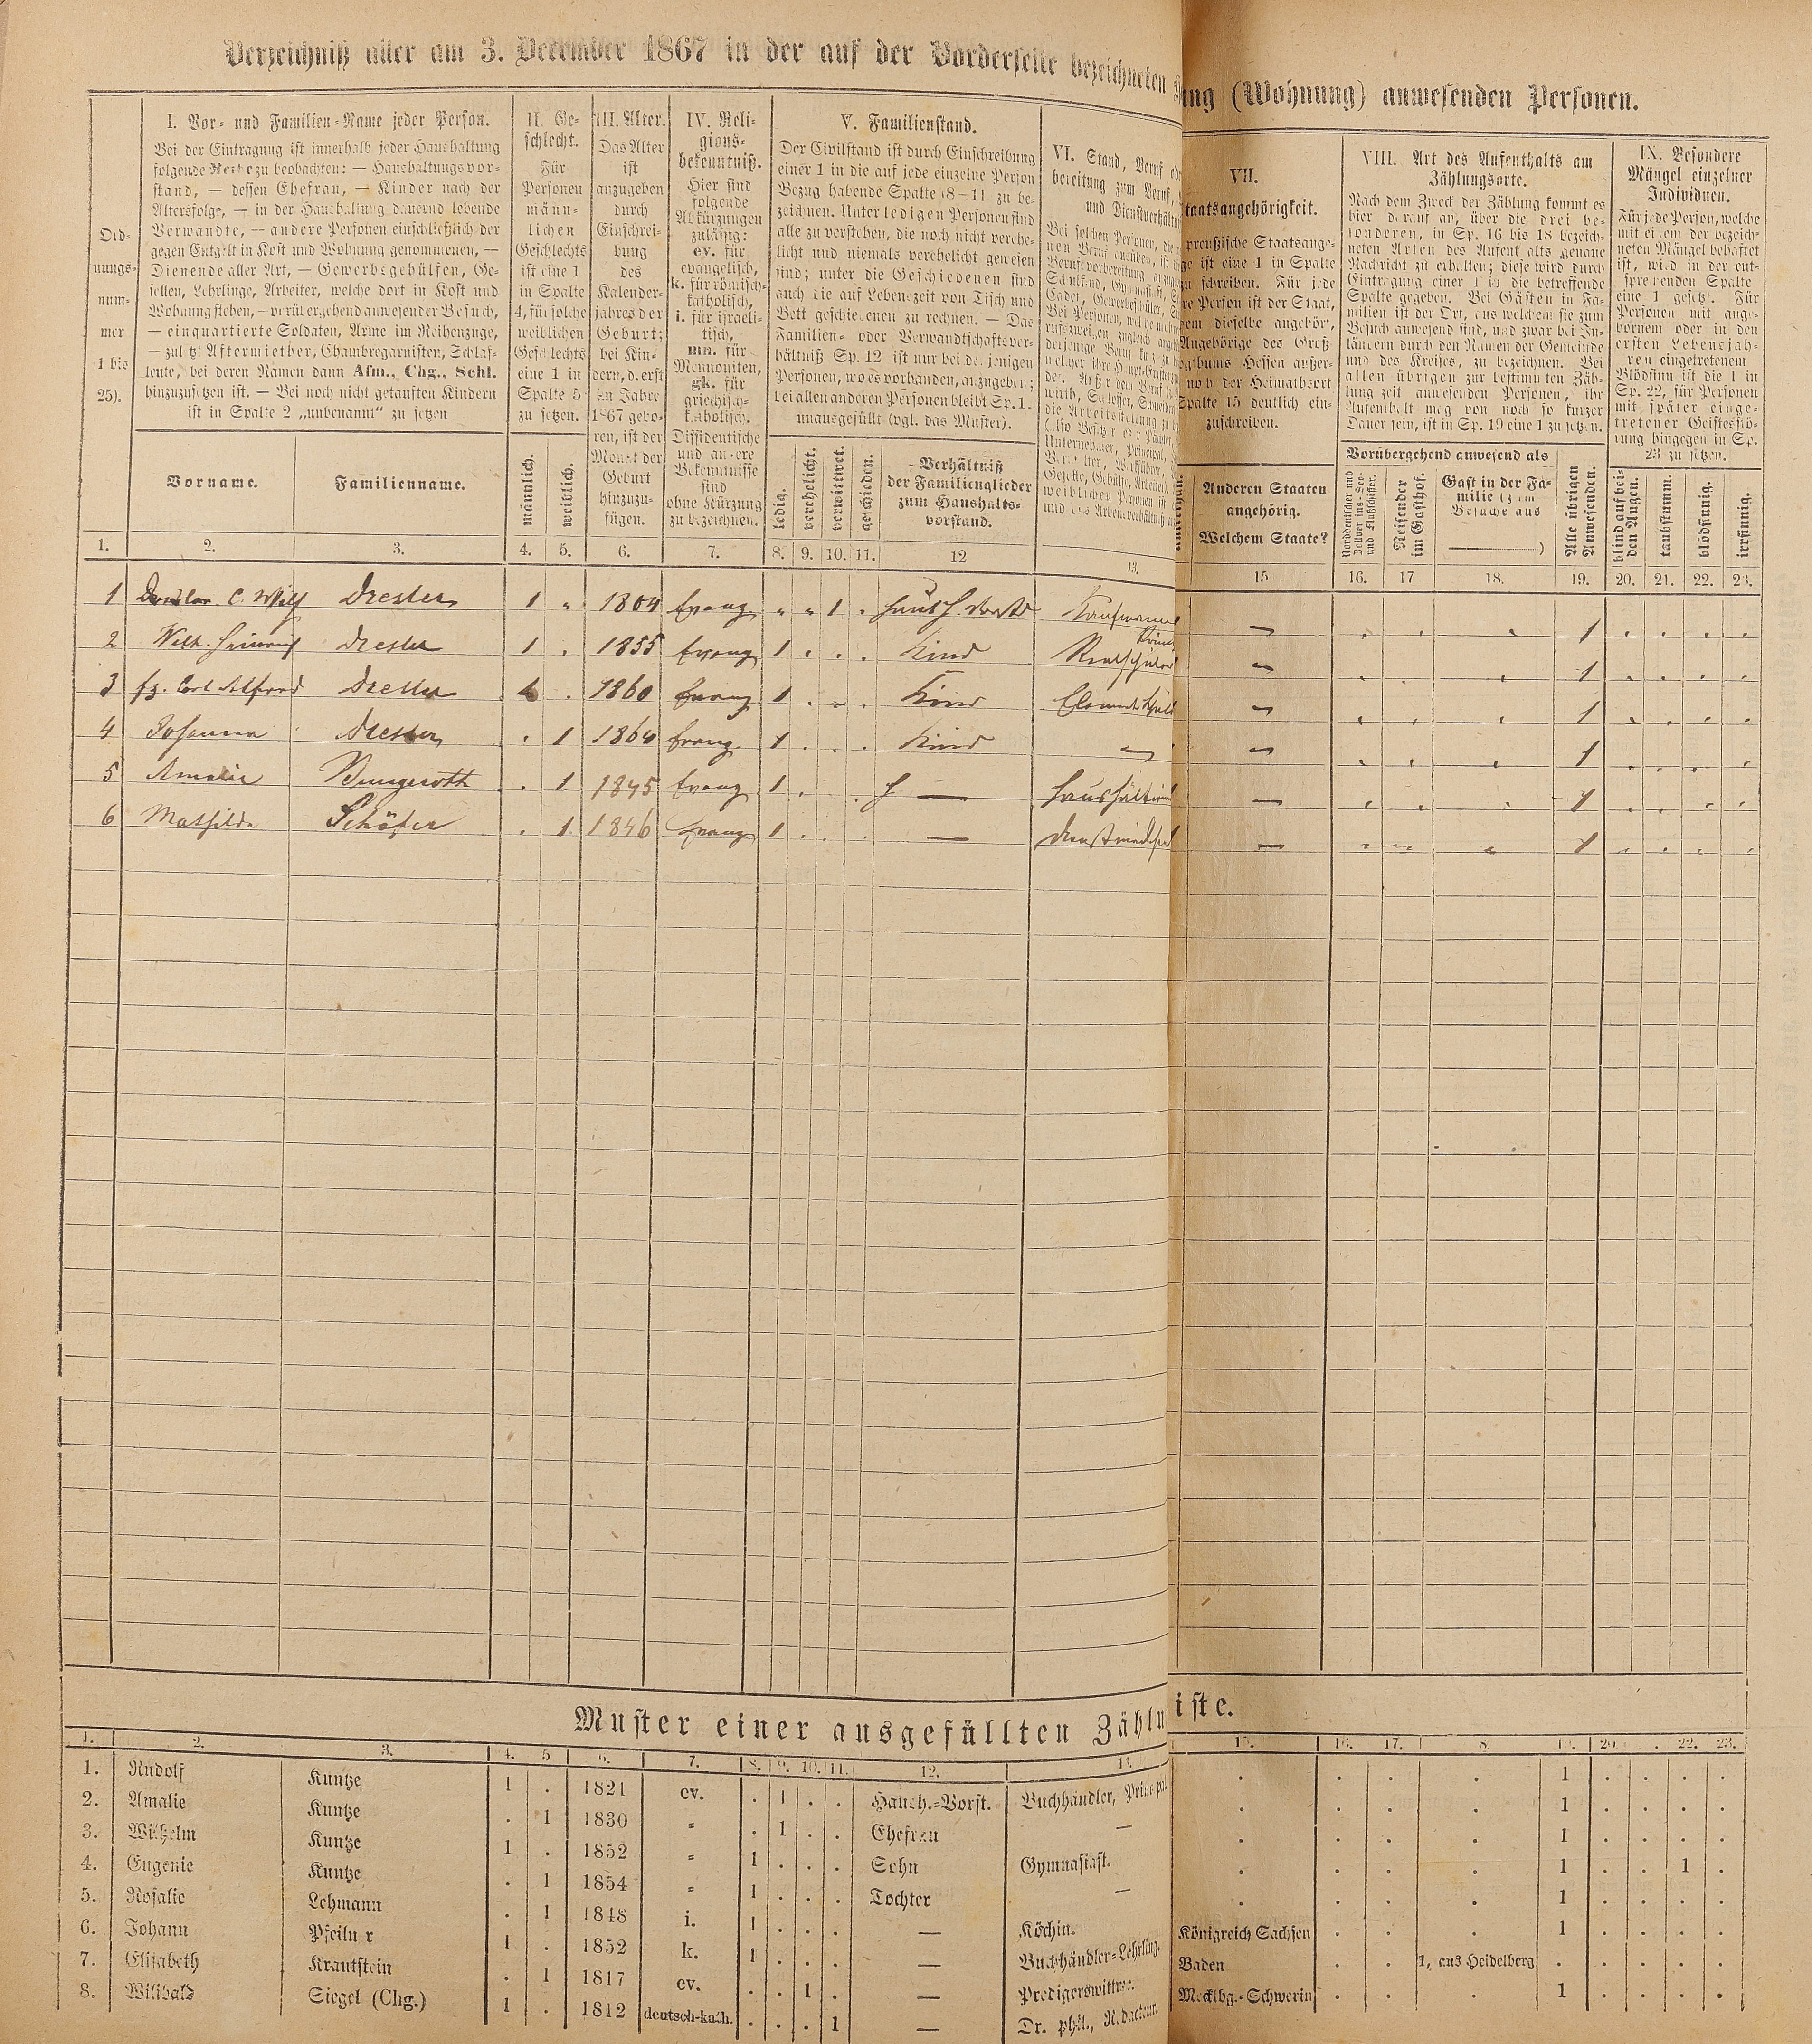 Verzeichniß aller am 3. December 1867 in der auf der Vorderseite bezeichneten
ung (Wohnung) anwesenden Personen.
Ord-
nungs-
num-
mer
1 bis
25).
I. Vor- und Familien-Name jeder Person.
Bei der Eintragung ist innerhalb jeder Haushaltung
folgende zu beobachten: — Haushaltungsvor-
stand, — dessen Ehefrau, — Kinder nach der
Altersfolge, — in der Haushaltung dauernd lebende
Verwandte, — andere Personen einschließlich der
gegen Entgelt in Kost und Wohnung genommenen, —
Dienende aller Art, — Gewerbsgehülfen, Ge-
sellen, Lehrlinge, Arbeiter, welche dort in Kost und
Wohnung stehen, — vorübergehend anwesender Besuch,
— einquartierte Soldaten, Arme im Reihenzuge,
— zuletzt Aftermiether, Chambregarnisten, Schlaf-
leute, bei deren Namen dann Afm., Chg., Schl.
hinzuzusetzen ist. — Bei noch nicht getauften Kindern
ist in Spalte 2 „unbenannt“ zu setzen
Vorname.
Familienname.
II. Ge-
schlecht.
Für
Personen
männ-
lichen
Geschlechts
ist eine 1
in Spalte
4, für solche
weiblichen
Geschlechts
eine 1 in
Spalte 5
zu setzen.
männlich.
weiblich.
III. Alter.
Das Alter
ist
anzugeben
durch
Einschrei-
bung
des
Kalender-
jahres der
Geburt;
bei Kin-
dern, d. erst
im Jahre
1867 gebo-
ren, ist der
Monat der
Geburt
hinzuzu-
fügen.
IV. Reli-
gions-
bekenntniß.
Hier sind
folgende
Abkürzungen
zulässig:
ev. für
evangelisch,
k. für römisch-
katholisch,
i. für israeli-
tisch,
mn. für
Mennoniten,
gk. für
griechisch-
katholisch.
Dissidentische
und andere
Bekenntnisse
sind
ohne Kürzung
zu bezeichnen.
V. Familienstand.
Der Civilstand ist durch Einschreibung
einer 1 in die auf jede einzelne Person
Bezug habende Spalte (8—11 zu be-
zeichnen. Unter ledigen Personen sind
alle zu verstehen, die noch nicht verehe-
licht und niemals verehelicht gewesen
sind; unter die Geschiedenen sind
auch die auf Lebenszeit von Tisch und
Bett geschiedenen zu rechnen. — Das
Familien- oder Verwandtschaftsver-
hältniß Sp. 12 ist nur bei denjenigen
Personen, wo es vorhanden, anzugeben;
bei allen anderen Personen bleibt Sp. 1.
unausgefüllt (vgl. das Muster).
ledig.
verehelicht.
verwittwet.
geschieden.
Verhältniß
der Familienglieder
zum Haushalts-
vorstand.
VI. Stand, Beruf
bereitung zum Beruf,
und
VII.
taatsangehörigkeit.
preußische Staatsange-
ist eine 1 in Spalte
zu schreiben. Für jede
Person ist der Staat,
dem dieselbe angehört,
Angehörige des Groß-
Hessen außer-
noch der Heimathsort
Spalte 15 deutlich ein-
zuschreiben.
Anderen Staaten
angehörig.
Welchem Staate?
VIII. Art des Aufenthalts am
Zählungsorte.
Nach dem Zweck der Zählung kommt es
hier darauf an, über die drei be-
sonderen, in Sp. 16 bis 18 bezeich-
neten Arten des Aufenthalts genaue
Nachricht zu erhalten; diese wird durch
Eintragung einer 1 in die betreffende
Spalte gegeben. Bei Gästen in Fa-
milien ist der Ort, aus welchem sie zum
Besuch anwesend sind, und zwar bei In-
ländern durch den Namen der Gemeinde
und des Kreises, zu bezeichnen. Bei
allen übrigen zur bestimmten Zäh-
lungszeit anwesenden Personen, ihr
Aufenthalt mag von noch so kurzer
Dauer sein, ist in Sp. 19 eine 1 zu setzen.
Vorübergehend anwesend als
Norddeutscher und
und Flußschiffer.
Reisender
im Gasthof.
Gast in der Fa-
milie (zum
Besuche aus
Alle übrigen
Anwesenden.
IX. Besondere
Mängel einzelner
Individuen.
Für jede Person, welche
mit einem der bezeich-
neten Mängel behaftet
ist, wird in der ent-
sprechenden Spalte
eine 1 gesetzt. Für
Personen mit ange-
bornem oder in den
ersten Lebensjah-
ren eingetretenem
Blödsinn ist die 1 in
Sp. 22, für Personen
mit später einge-
tretener Geistesstö-
rung hingegen in Sp.
23 zu setzen.
blind auf bei-
den Augen.
taubstumm.
blödsinnig.
irrsinnig.
1. 2. 3. 4. 5. 6. 7. 8. 9. 10. 11. 12 13. 15 16. 17 18. 19. 20. 21. 22. 23.
1 Dresler 1 „ 1804 Evang „ „ 1 . Kaufmann — 1
2 Wilh. Heinrich Dresler 1 . 1855 Evang 1 . . . Kind Realschüler — 1
3 Carl Alfred Dresler 1 . 1860 Evang 1 . . . Kind — 1
4 Johanna Dresler . 1 1864 Evang. 1 . . . Kind — — 1
5 Amalie Bungeroth . 1 1845 Evang 1 . — Haushälterin — 1
6 Mathilde Schäfer . 1 1846 Evang 1 . . — Dienstmädchen — 1
Muster einer ausgefüllten Zähl
iste.
1. 2. 3. 4. 5 6. 7. 8. 9. 10. 11. 12. 13. 15. 16. 17. 8. 19. 20. . 22. 23.
1. Rudolf Kuntze 1 . 1821 ev. . 1 . . Haush.-Vorst. Buchhändler, Prinzipal . . . . 1 . . . .
2. Amalie Kuntze . 1 1830 „ . 1 . . Ehefrau — . . . . 1 . . . .
3. Wilhelm Kuntze 1 . 1852 „ 1 . . . Sohn Gymnasiast. . . . . 1 . . . .
4. Eugenie Kuntze . 1 1854 „ 1 . . . Tochter — . . . . 1 . . 1 .
5. Rosalie Lehmann . 1 1848 i. 1 . . . — Köchin. . . . . 1 . . . .
6. Johann Pfeilner 1 . 1852 k. 1 . . . — Buchhändler-Lehrling. Königreich Sachsen . . . 1 . . . .
7. Elisabeth Krautstein . 1 1817 ev. . . 1 . — Predigerswittwe. Baden . . 1, aus Heidelberg . . . . .
8. Wilibald Siegel (Chg.) 1 . 1812 deutsch-kath. . . . 1 — Dr. phil., Redacteur. Mecklbg.-Schwerin . . . 1 . . . .